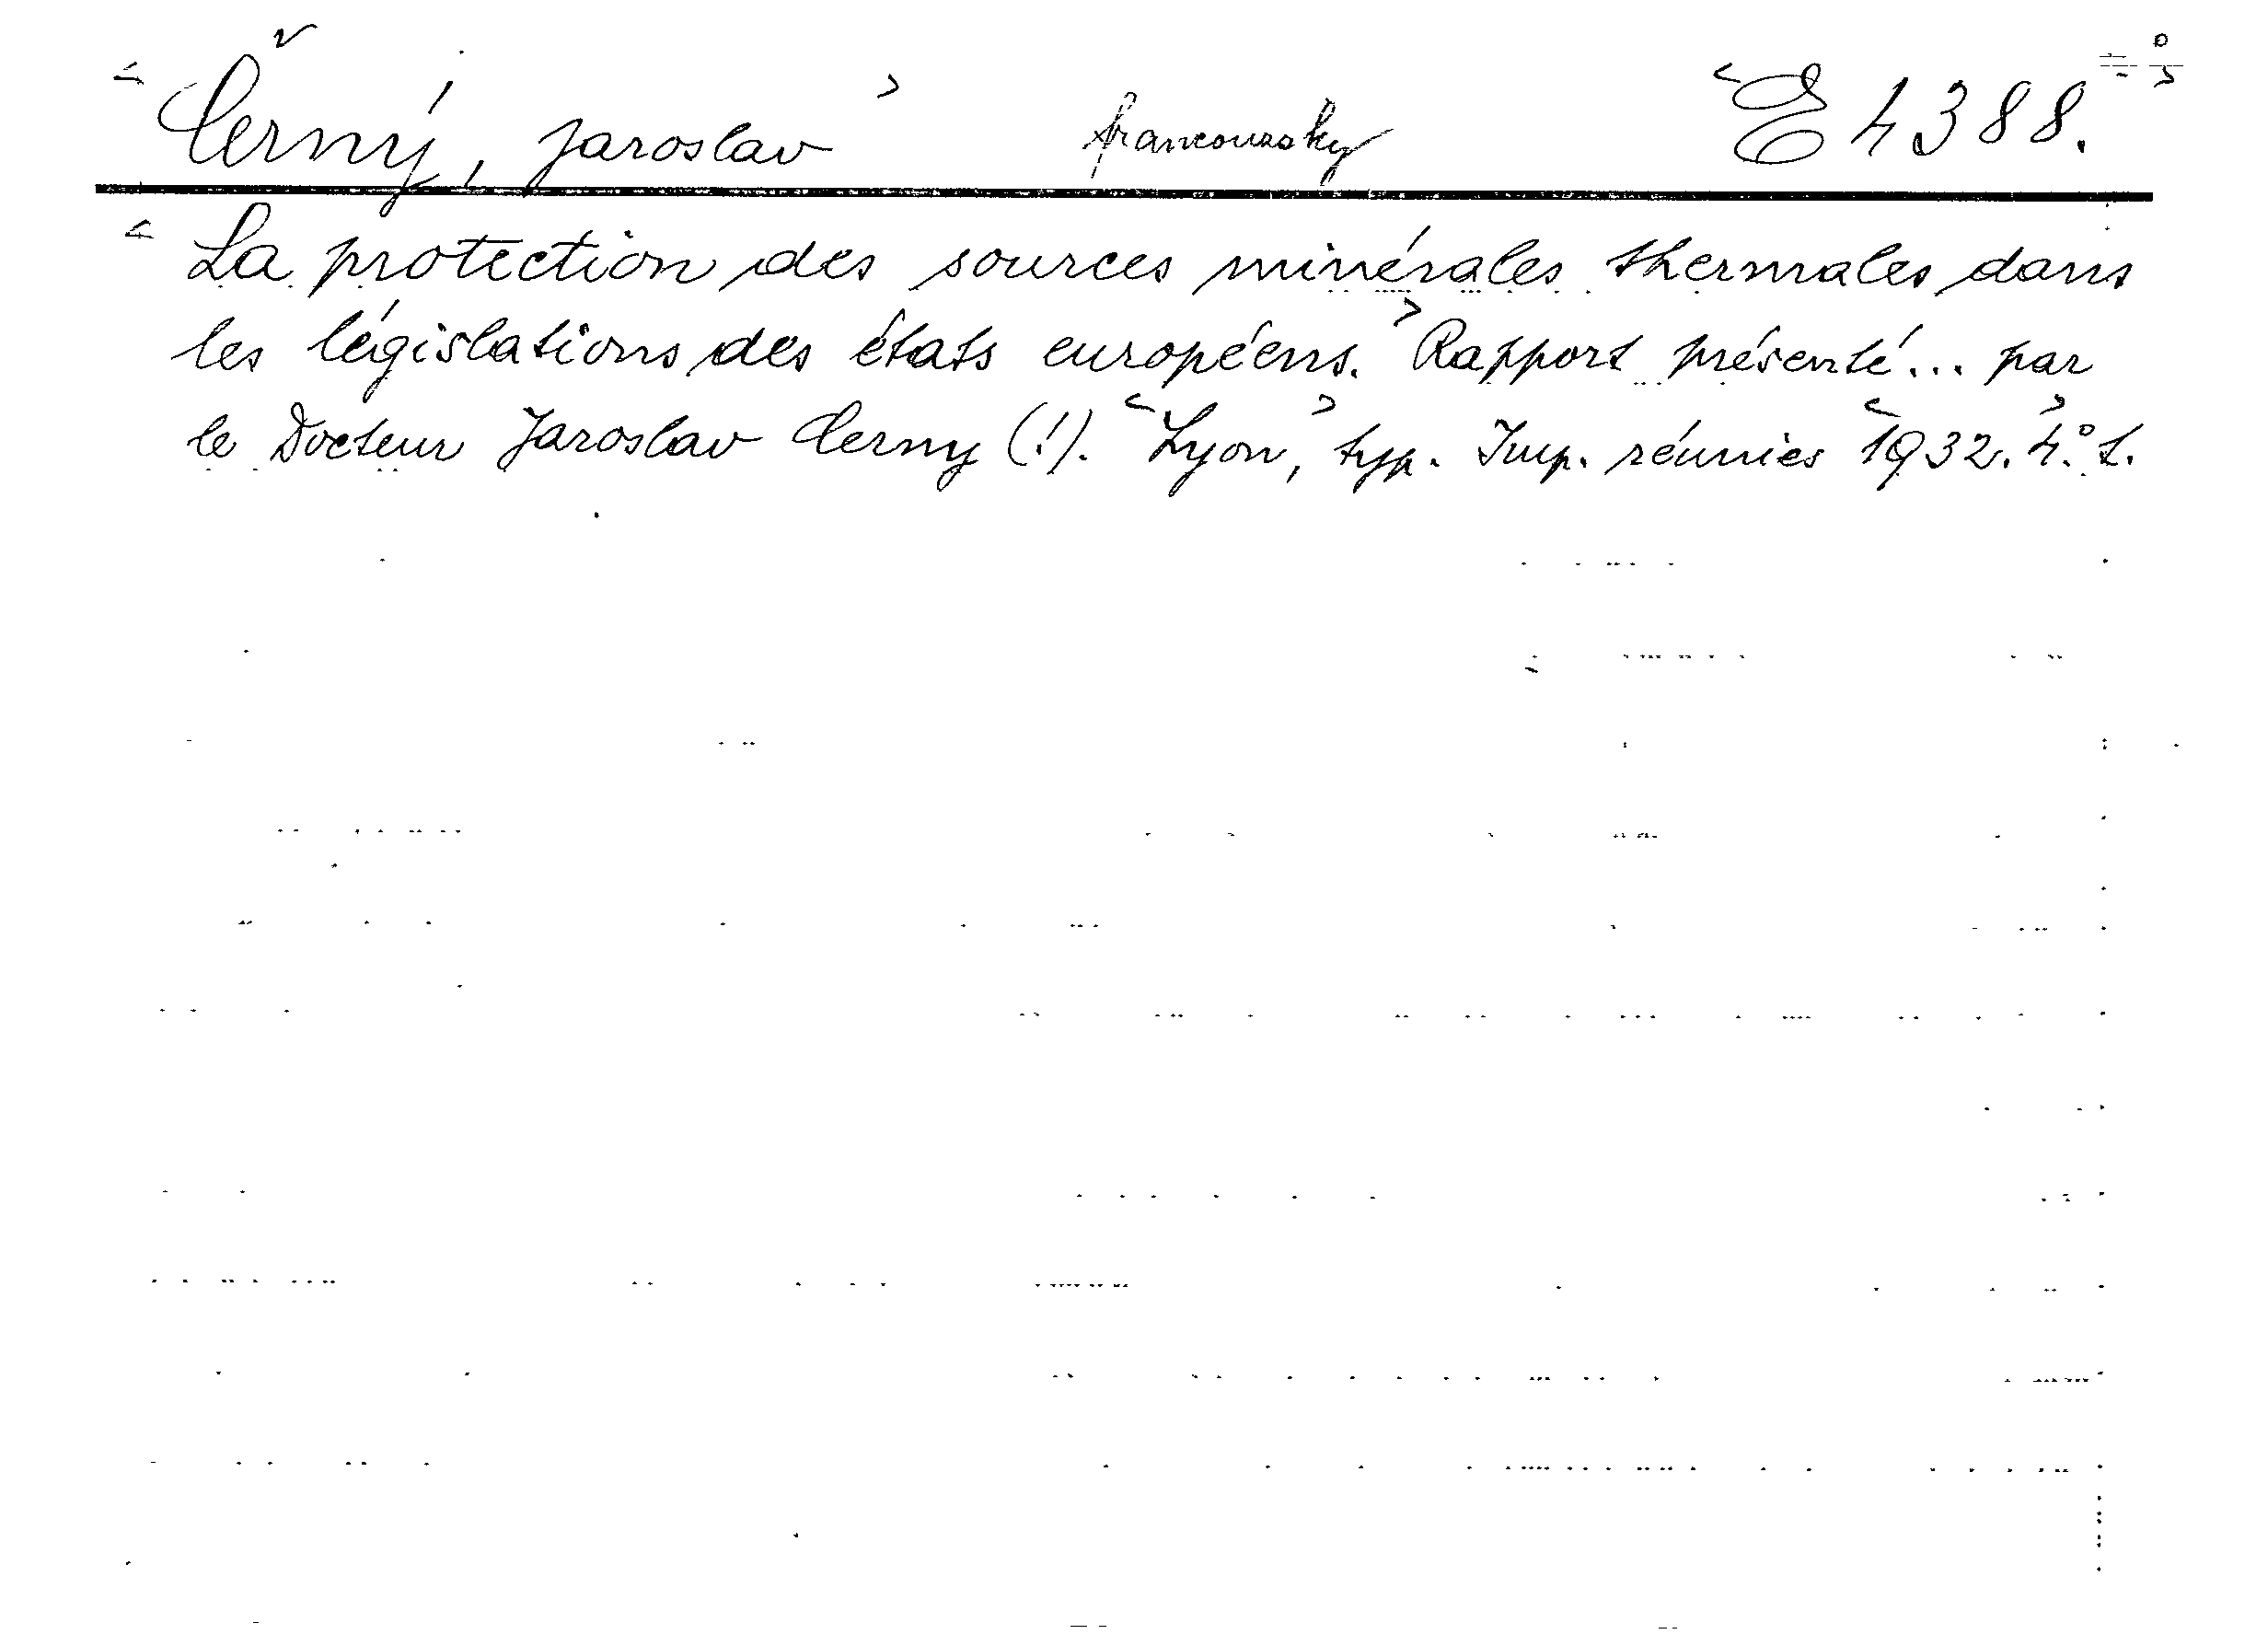 Černý, Jaroslav francouzsky E 4388.
La protection des sources minérales thermales dans
les législations des états européens. Rapport présenté... par
le Docteur Jaroslav Cerny (!). Lyon, typ. Imp. réunies 1932. 4.°